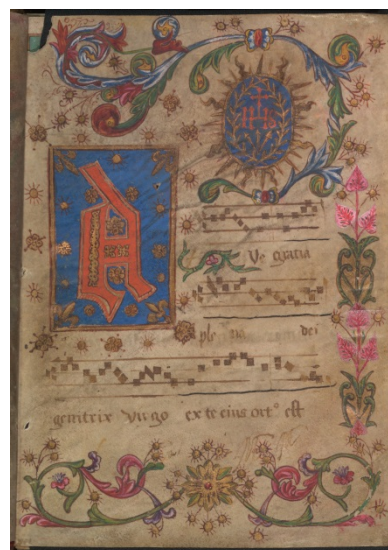 IHS
A
Ve gratia
ple na dei
genitrix Virgo ex te eius ort° est